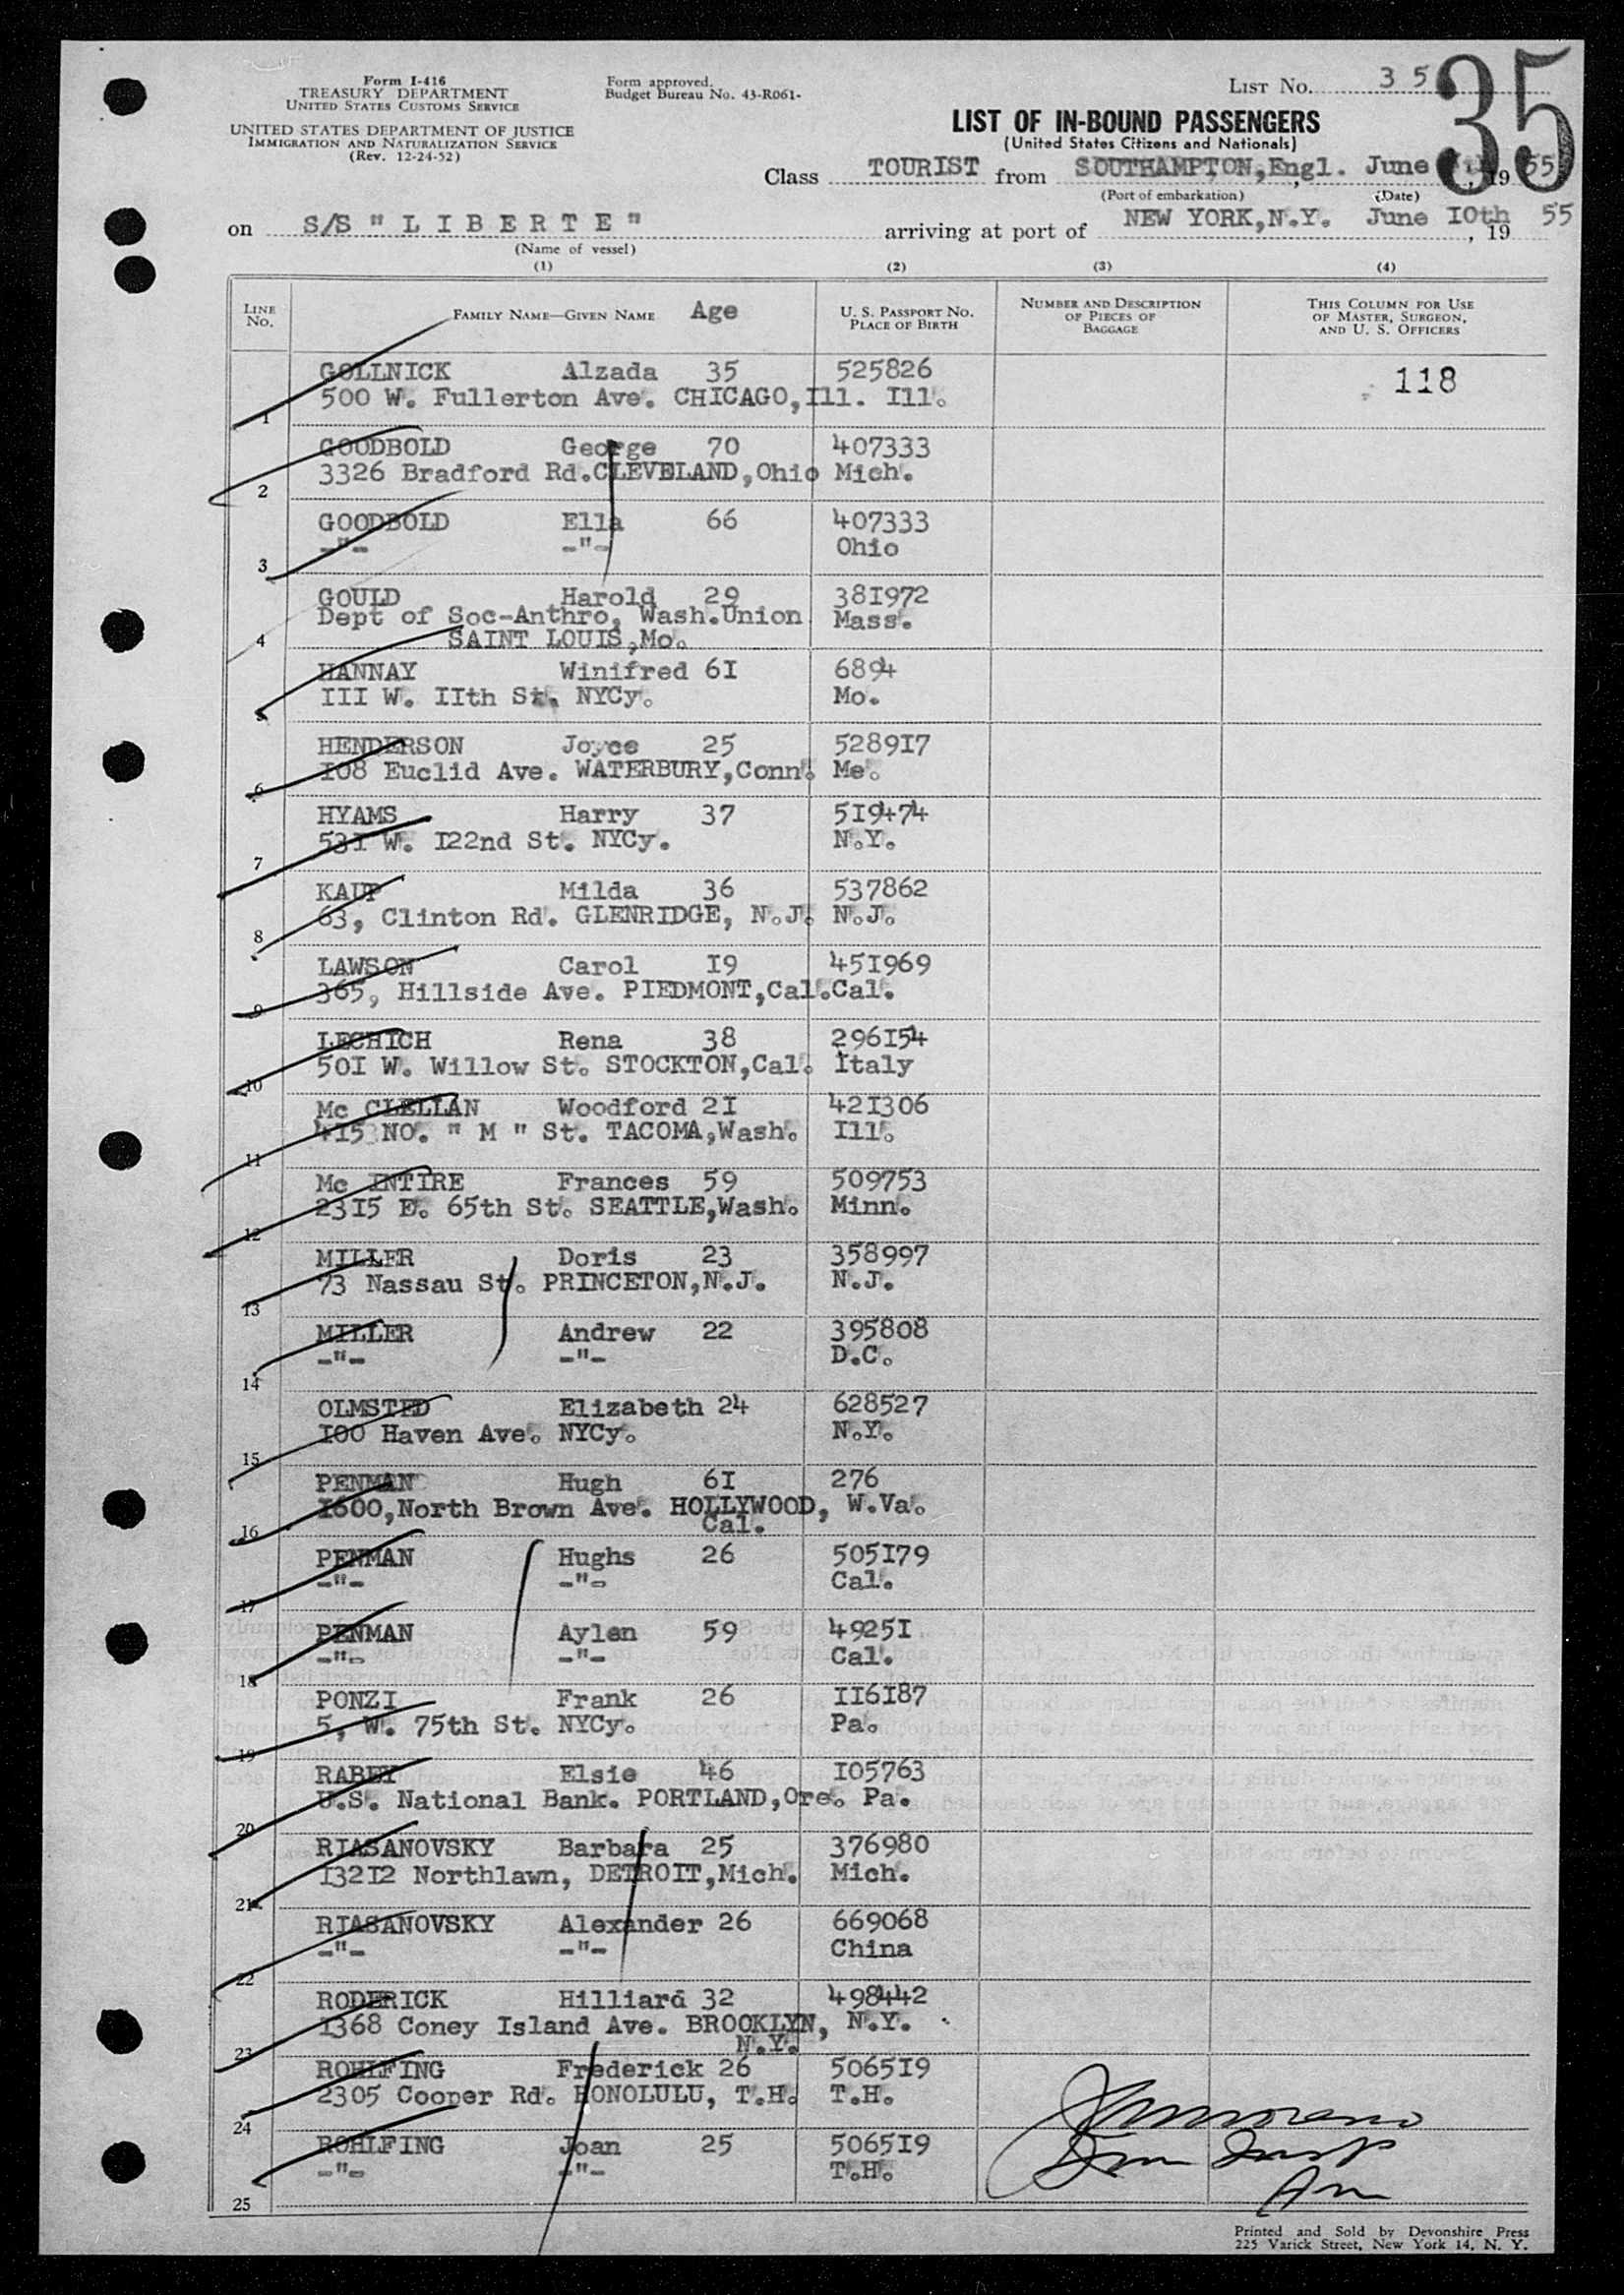 Form I-416
TREASURY DEPARTMENT
UNITED STATES CUSTOMS SERVICE
UNITED STATES DEPARTMENT OF JUSTICE
IMMIGRATION AND NATURALIZATION SERVICE
(Rev. 12-24-52)
Form approved.
Budget Bureau No. 43-R061-
LIST NO. 35
35
LIST OF IN-BOUND PASSENGERS
(United States Citizens and Nationals)
Class TOURIST from SOUTHAMPTON,Engl. June , 19 55
(Port of embarkation) (Date)
on S/S " L I B E R T E " arriving at port of NEW YORK,N.Y. June I0th , 19 55
(Name of vessel)
(1) (2) (3) (4)
LINE No. FAMILY NAME—GIVEN NAME Age U. S. PASSPORT NO. PLACE OF BIRTH NUMBER AND DESCRIPTION OF PIECES OF BAGGAGE THIS COLUMN FOR USE OF MASTER, SURGEON, AND U. S. OFFICERS
GOLLNICK Alzada 35 525826 118
500 W. Fullerton Ave. CHICAGO,Ill. Ill.
1
GOODBOLD George 70 407333
3326 Bradford Rd.CLEVELAND,Ohio Mich.
2
GOODBOLD Ella 66 407333
-"- -"- Ohio
3
GOULD Harold 29 38I972
Dept of Soc-Anthro, Wash.Union Mass.
4 SAINT LOUIS,Mo.
HANNAY Winifred 6I 6894
III W. IIth St. NYCy. Mo.
5
HENDERSON Joyce 25 5289I7
I08 Euclid Ave. WATERBURY,Conn. Me.
6
HYAMS Harry 37 5I9474
53I W. I22nd St. NYCy. N.Y.
7
KAUP Milda 36 537862
63, Clinton Rd. GLENRIDGE, N.J. N.J.
8
LAWSON Carol I9 45I969
365, Hillside Ave. PIEDMONT,Cal.Cal.
9
LECHICH Rena 38 296I54
50I W. Willow St. STOCKTON,Cal. Italy
10
Mc CLELLAN Woodford 2I 42I306
4I5 NO. " M " St. TACOMA,Wash. Ill.
11
Mc INTIRE Frances 59 509753
23I5 E. 65th St. SEATTLE,Wash. Minn.
12
MILLER Doris 23 358997
73 Nassau St. PRINCETON,N.J. N.J.
13
MILLER Andrew 22 395808
-"- -"- D.C.
14
OLMSTED Elizabeth 24 628527
I00 Haven Ave. NYCy. N.Y.
15
PENMAN Hugh 6I 276
I600,North Brown Ave. HOLLYWOOD, W.Va.
16 Cal.
PENMAN Hughs 26 505I79
-"- -"- Cal.
17
PENMAN Aylen 59 4925I
-"- -"- Cal.
18
PONZI Frank 26 II6I87
5, W. 75th St. NYCy. Pa.
19
RABEY Elsie 46 I05763
U.S. National Bank. PORTLAND,Ore. Pa.
20
RIASANOVSKY Barbara 25 376980
I32I2 Northlawn, DETROIT,Mich. Mich.
21
RIASANOVSKY Alexander 26 669068
-"- -"- China
22
RODERICK Hilliard 32 498442
I368 Coney Island Ave. BROOKLYN, N.Y.
23 N.Y.
ROHLFING Frederick 26 5065I9
2305 Cooper Rd. HONOLULU, T.H. T.H.
24
ROHLFING Joan 25 5065I9
-"- -"- T.H.
25
Printed and Sold by Devonshire Press
225 Varick Street, New York 14, N. Y.